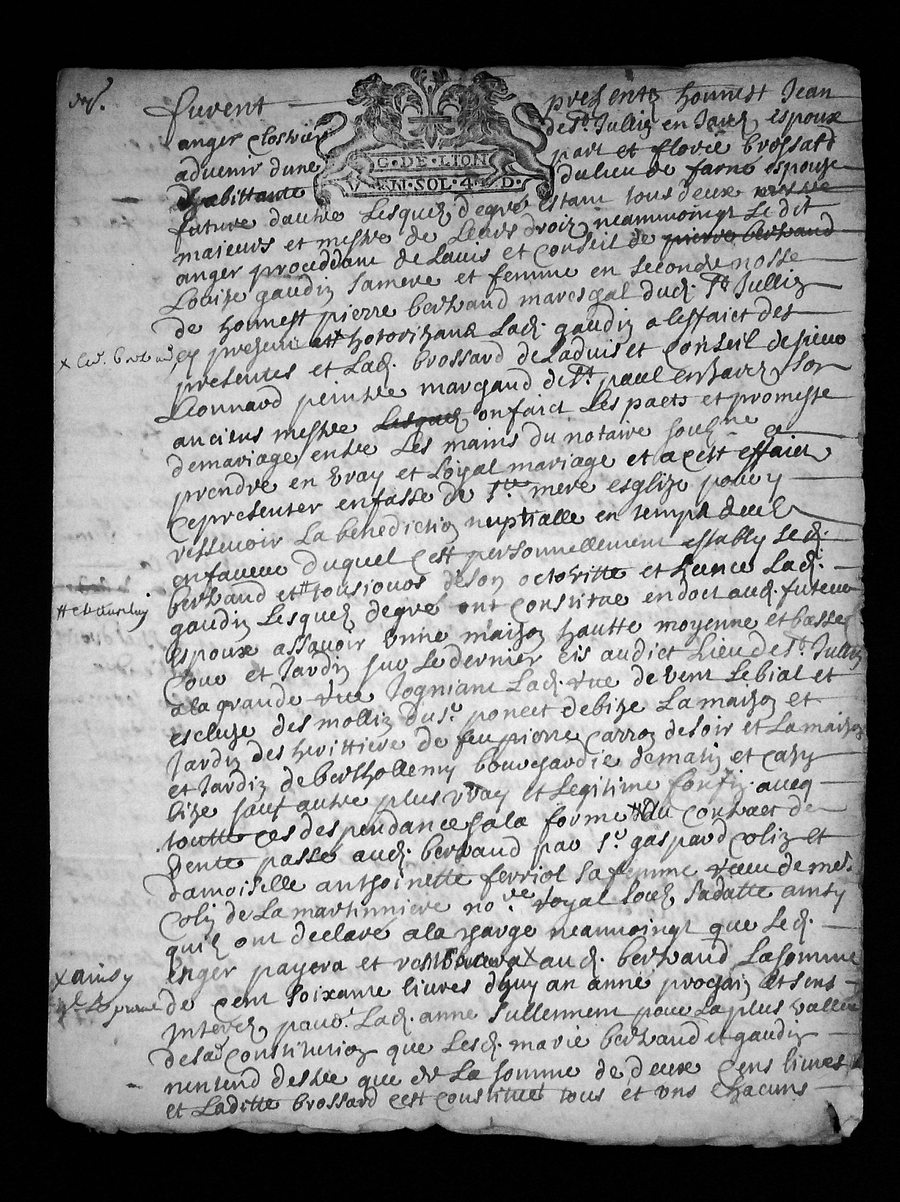 furent presents honnest Jean
anger closvier de St. Jullin en Jarez espoux
advenir dune part et florie brossard
habittante du lieu de farno espouze
future dautre Lesquelz degre estant tous deux
majeurs et mestre de Leurs droiz neammoingt Le dit
anger proceddant de Lauis et Conseil de pierre bertrand
Louise gaudin sa mere et femme en seconde nosse
de honnest pierre bertrand mareschal dud. St. Jullin
cy present et hotorizant Lad. gaudin a leffaict des
presentes et Lad. brossard de Laduis et Conseil de sieur
x Led. bertrand
Leonnard peintre marchand de St. paul en Jarez son
anciens mestre Lesquelz on faict Les pacts et promesse
de mariage entre Les mains du notaire soubne. ce
prendre en vray et Loyal mariage et a cest effaict
ce presenter en fasse de Ste. mere esglize pour y
ressevoir La benediction nuptialle en temps deub
en faveur duquel cest personnellement estably Led.
bertrand et tousjours de son octoritte et Lad.
gaudin Lesquelz degre ont constitue en doct aud. futeur
espoux assavoir unne maison hautte moyenne et basse
Cour et Jardin sur Le dernier cis audict Lieu de St. Jullin
a la grande rue Joigniant Lad. rue de vent Le bial et
escluze des mollin du Sr. poncet de bize La maison et
Jardin des herittiere de feu pierre Carron de soir et La maison
et Jardin de berthollemy bourgardie de matin et
bize sauf autre plus vray et Legitime Confin avecq
toutte ces despendances a la forme du Contract de
vente passe aud. bertrand par Sr. gaspard Colin et
damoiselle anthoinette ferriol sa femme receu de me.
Colin de La martinniere no.re royal soubz sa datte ainsy
quil ont declare a la charge neaumoingt que Led.
enger payera et x aud. bertrand La somme
x ainsy
de cent soixante livres dhuy an anne prochain et sens
Interest pour Lad. anne sullemment pour La plus vallue
de sad. constitution que Lesd. marie bertrand et gaudin
nentend destre que de La somme de deux Cens livres
et Laditte brossard cest constitue tous et uns chacuns
G · DE · LION
V · N · SOL · 4 · D ·